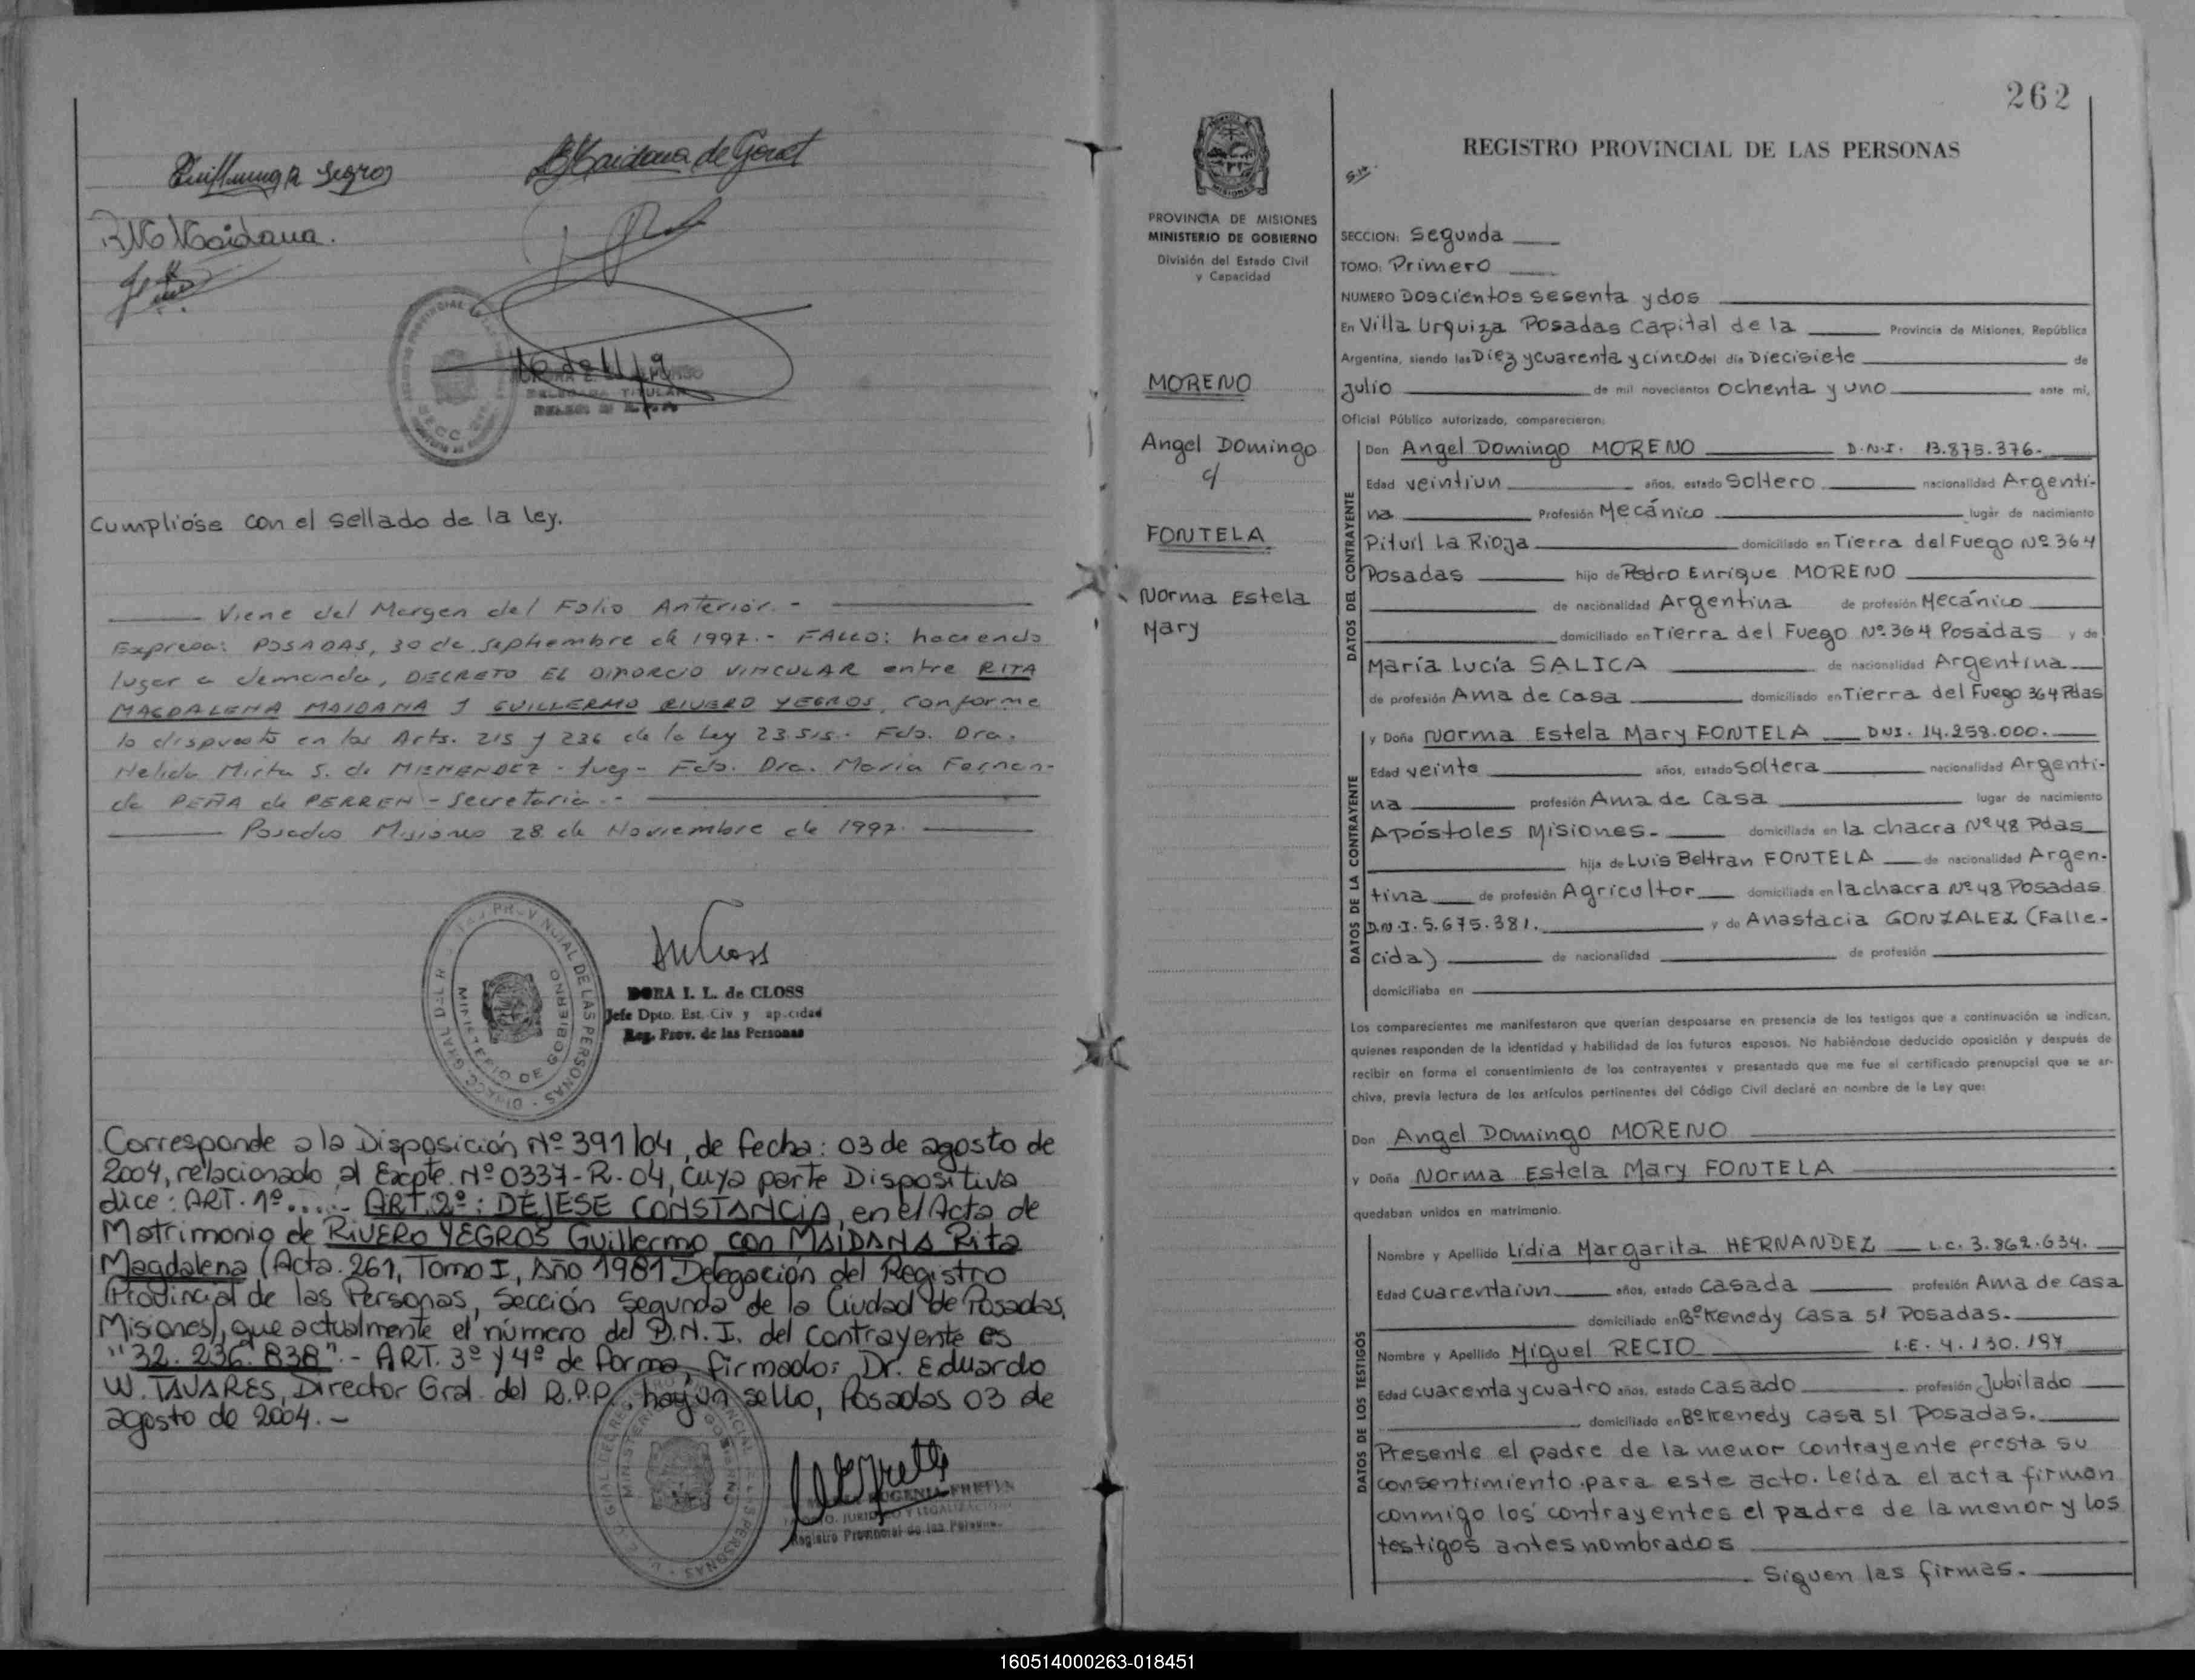 Maidana.
REGISTRO PROVINCIAL
DELEGADA TITULAR
Cumpliose con el sellado de la ley.
Viene del Margen del Folio Anterior.-
Expresa: POSADAS, 30 de septiembre de 1997.- FALLO: haciendo
lugar a demanda, DECRETO EL DIVORCIO VINCULAR entre RITA
MAGDALENA MAIDANA y GUILLERMO RIVERO YEGROS, conforme
lo dispuesto en los Arts. 215 y 236 de la Ley 23.515.- Fdo. Dra.
Nelida Mirta S. de MENENDEZ - Juez - Fdo. Dra. Maria Fernan-
da PEÑA de PERREN - Secretaria.-
Posadas Misiones 28 de Noviembre de 1997.
DIRECC. GRAL DEL R PROVINCIAL DE LAS PERSONAS
MINISTERIO DE GOBIERNO
DORA I. L. de CLOSS
Jefe Dpto. Est. Civ. y ap.cidad
Reg. Prov. de las Personas
Corresponde a la Disposición Nº 391/04, de fecha: 03 de agosto de
2004, relacionado al Expte. Nº 0337-R-04, cuya parte Dispositiva
dice: ART. 1º..... ART. 2º: DEJESE CONSTANCIA, en el Acta de
Matrimonio de RIVERO YEGROS Guillermo con MAIDANA Rita
Magdalena (Acta. 261, Tomo I, Año 1981 Delegación del Registro
Provincial de las Personas, Sección Segunda de la Ciudad de Posadas,
Misiones), que actualmente el número del D.N.I. del contrayente es
"32. 236. 838".- ART. 3º y 4º de forma, firmado: Dr. Eduardo
W. TAVARES, Director Gral. del R.P.P., hay un sello, Posadas 03 de
agosto de 2004.-
EUGENIA
JURIDICO Y LEGALIZACIONES
Registro Provincial de las Personas
262
REGISTRO PROVINCIAL DE LAS PERSONAS
PROVINCIA DE MISIONES
MINISTERIO DE GOBIERNO
División del Estado Civil
y Capacidad
MORENO
Angel Domingo
c/
FONTELA
Norma Estela
Mary
SECCION: Segunda
TOMO: Primero
NUMERO Doscientos sesenta y dos
En Villa Urquiza Posadas Capital de la Provincia de Misiones, República
Argentina, siendo las Diez y cuarenta y cinco del día Diecisiete de
Julio de mil novecientos ochenta y uno ante mí,
Oficial Público autorizado, comparecieron:
DATOS DEL CONTRAYENTE
Don Angel Domingo MORENO D.N.I. 13.875.376.-
Edad veintiun años, estado Soltero nacionalidad Argenti-
na Profesión Mecánico lugar de nacimiento
Pituil La Rioja domiciliado en Tierra del Fuego Nº 364
Posadas hijo de Pedro Enrique MORENO
de nacionalidad Argentina de profesión Mecánico
domiciliado en Tierra del Fuego Nº 364 Posadas y de
María Lucía SALICA de nacionalidad Argentina
de profesión Ama de Casa domiciliado en Tierra del Fuego 364 Pdas
DATOS DE LA CONTRAYENTE
y Doña Norma Estela Mary FONTELA DNI. 14.258.000.-
Edad veinte años, estado Soltera nacionalidad Argenti-
na profesión Ama de Casa lugar de nacimiento
Apóstoles Misiones.- domiciliada en la chacra Nº 48 Pdas
hija de Luis Beltran FONTELA de nacionalidad Argen-
tina de profesión Agricultor domiciliado en la chacra Nº 48 Posadas
D.N.I. 5.675.381. y de Anastacia GONZALEZ (Falle-
cida) de nacionalidad de profesión
domiciliaba en
Los comparecientes me manifestaron que querían desposarse en presencia de los testigos que a continuación se indican,
quienes responden de la identidad y habilidad de los futuros esposos. No habiéndose deducido oposición y después de
recibir en forma el consentimiento de los contrayentes y presentado que me fue el certificado prenupcial que se ar-
chiva, previa lectura de los artículos pertinentes del Código Civil declaré en nombre de la Ley que:
Don Angel Domingo MORENO
y Doña Norma Estela Mary FONTELA
quedaban unidos en matrimonio.
DATOS DE LOS TESTIGOS
Nombre y Apellido Lidia Margarita HERNANDEZ L.C. 3.862.634.
Edad cuarentaiun años, estado casada profesión Ama de Casa
domiciliado en Bº Kenedy Casa 51 Posadas.
Nombre y Apellido Miguel RECIO L.E. 4.130.197
Edad cuarenta y cuatro años, estado casado profesión Jubilado
domiciliado en Bº Kenedy casa 51 Posadas.
Presente el padre de la menor contrayente presta su
consentimiento para este acto. Leída el acta firman
conmigo los contrayentes el padre de la menor y los
testigos antes nombrados
Siguen las firmas.
160514000263-018451